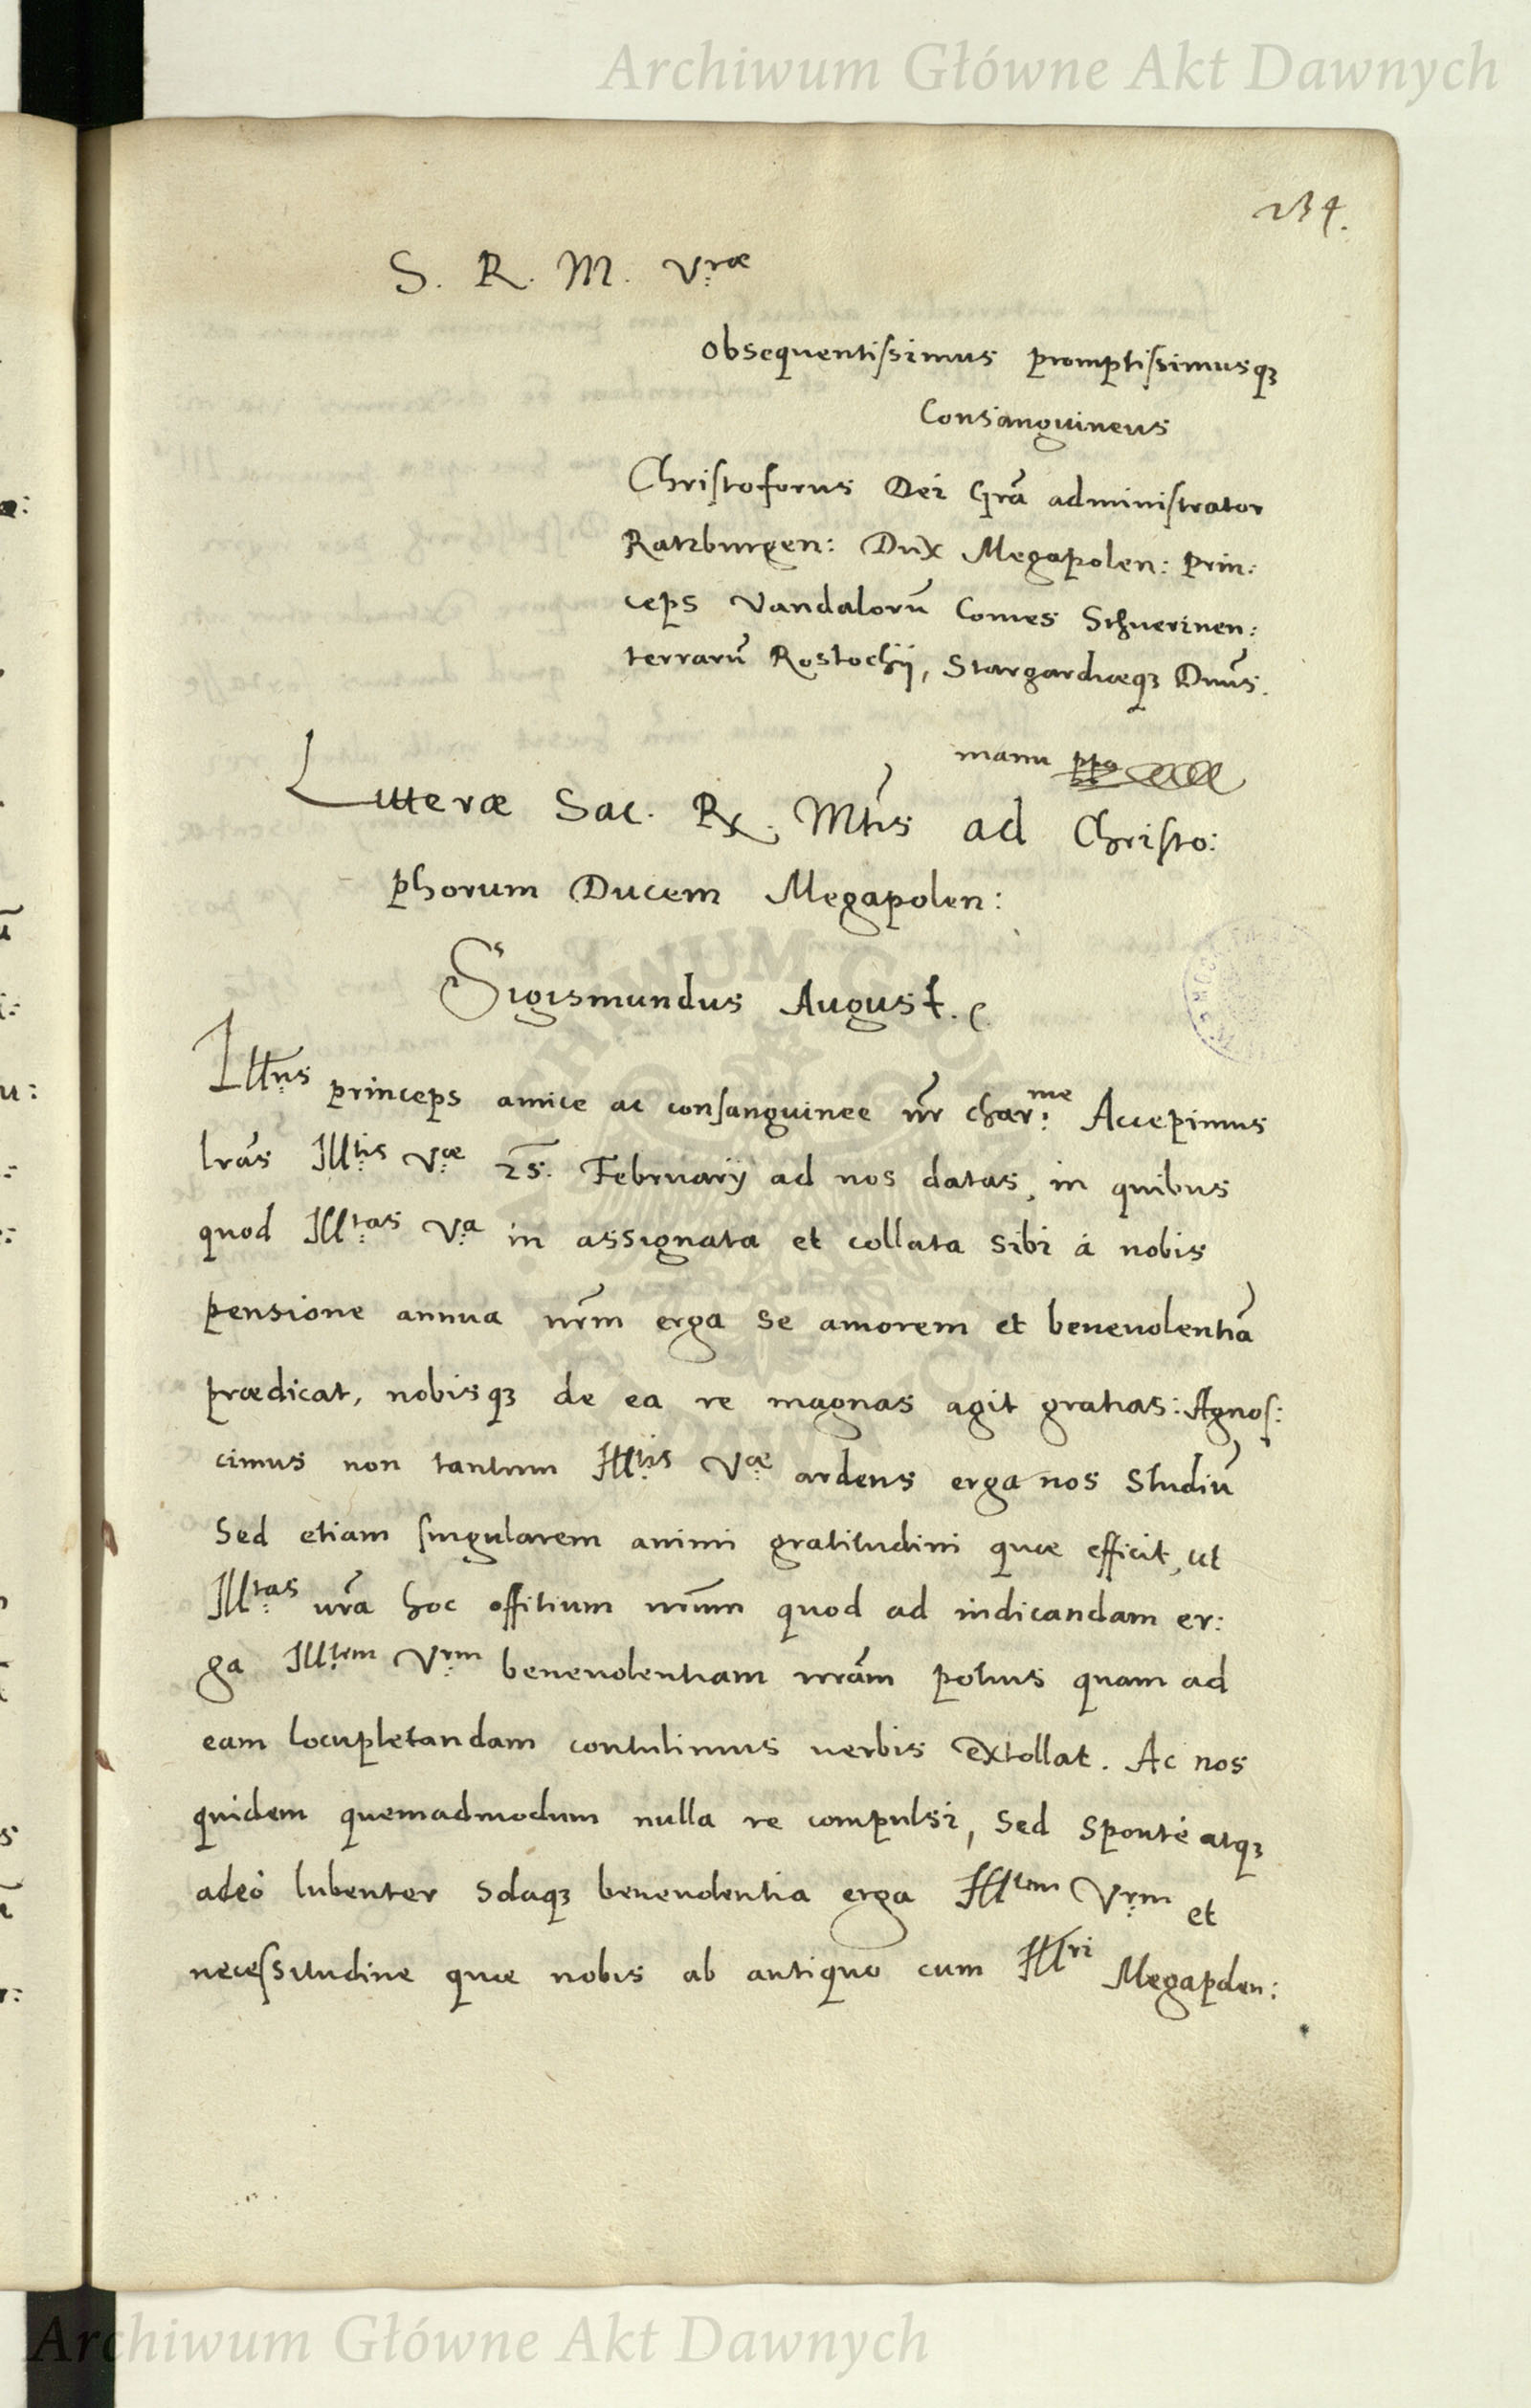 Archiwum Główne Akt Dawnych
234.
S. R. M. Vræ
obsequentissimus promptissimusqꝫ
Consanguineus
Christoforus Dei Grã administrator
Ratzburgen: Dux Megapolen: Prin:
ceps Vandalorũ Comes Schuerinen:
terrarũ Rostochij, Stargardiæqꝫ Dnũs.
manu ppa
Litteræ Sac. Rx. Mtis ad Christo:
phorum Ducem Megapolen:
Sigismundus August. c
Illus princeps amice ac consanguinee nr̃ char:me Accepimus
lrãs Illtis Væ 25. February ad nos datas, in quibus
quod Illtas Va in assignata et collata sibi á nobis
pensione annua nrm̃ erga se amorem et beneuolentiã
prædicat, nobisqꝫ de ea re magnas agit gratias: Agnos:
cimus non tantum Illtis Væ ardens erga nos studiũ
sed etiam singularem animi gratitudini quæ efficit, ut
Illtas vrã hoc offitium nrũm quod ad indicandam er:
ga Illtem Vrm beneuolentiam nrãm potius quam ad
eam locupletandam contulimus uerbis extollat. Ac nos
quidem quemadmodum nulla re compulsi, sed sponte atqꝫ
adeò lubenter solaqꝫ beneuolentia erga Illtem Vrm et
necessitudine quæ nobis ab antiquo cum Illri Megapolen:
Archiwum Główne Akt Dawnych